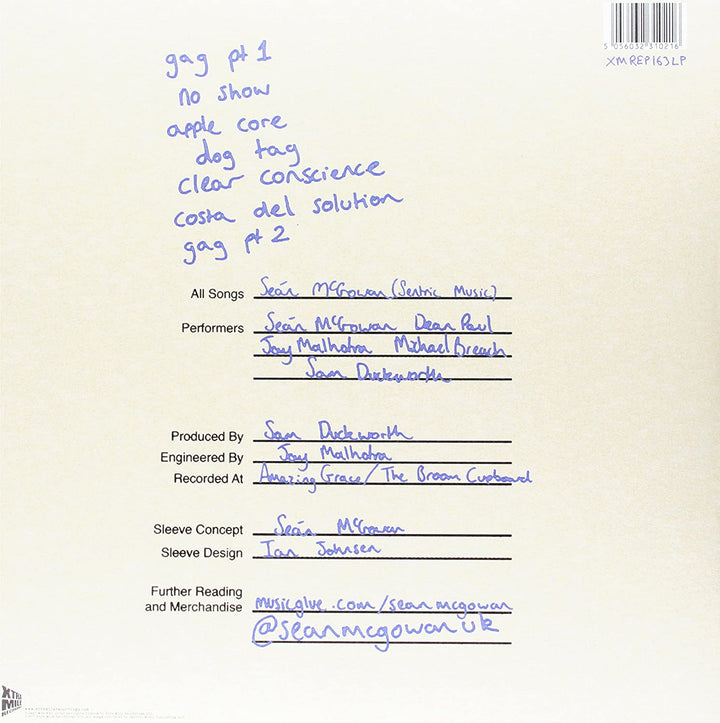 5 056032 310216
XMREP163LP
gag pt 1
no show
apple core
dog tag
clear conscience
costa del solution
gag pt 2
All Songs Seán McGowan (Sentric Music)
Performers Seán McGowan Dean Paul
Jay Malhotra Michael Breach
Sam Duckworth
Produced By Sam Duckworth
Engineered By Jay Malhotra
Recorded At Amazing Grace/The Broom Cupboard
Sleeve Concept Seán McGowan
Sleeve Design Ian Johnsen
Further Reading
and Merchandise musicglue.com/seanmcgowan
@seanmcgowanuk
XTRA
MILE